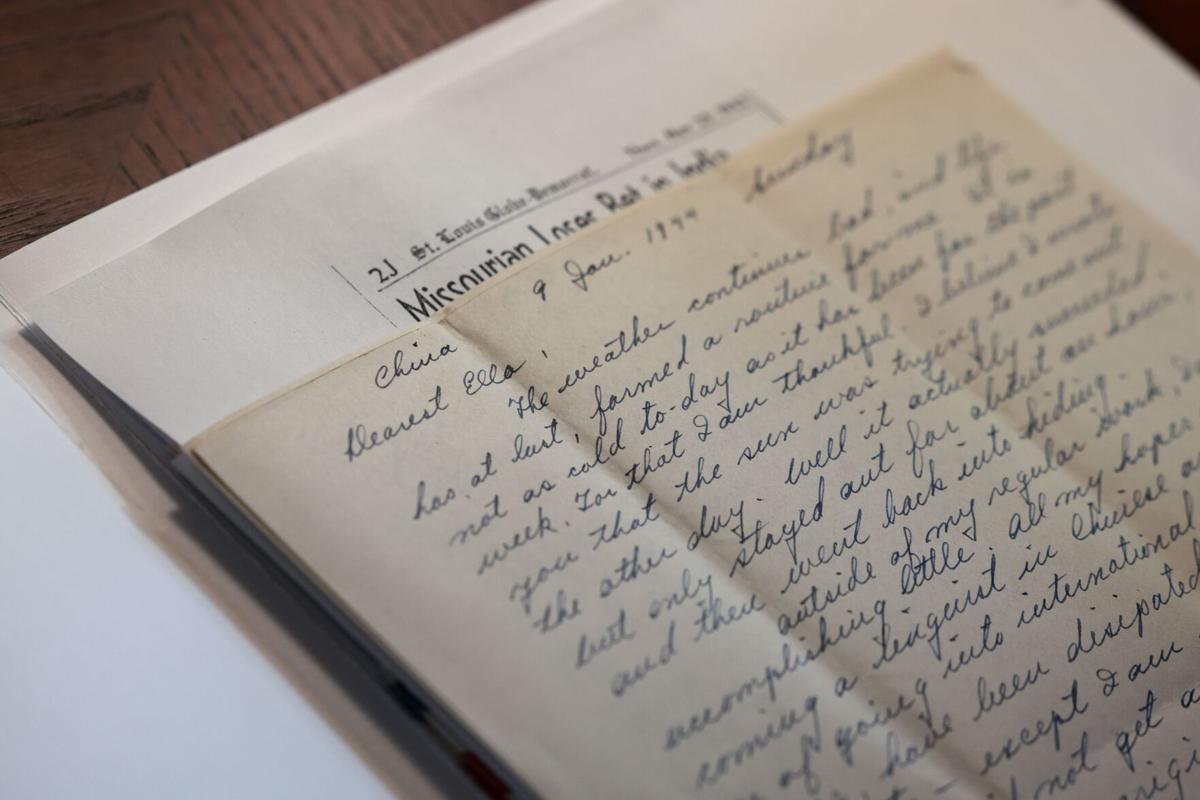 2J St. Louis Globe-Democrat
Missourian Loses Rat in India
China 9 Jan. 1944 Sunday
Dearest Ella,
The weather continues bad, and life
has, at last, formed a routine for me. It is
not as cold to-day as it has been for the past
week. For that I am thankful. I believe I wrote
you that the sun was trying to come out
the other day. Well it actually succeeded,
but only stayed out for about an hour,
and then went back into hiding.
outside of my regular work,
accomplishing little. All my hopes
coming a linguist in Chinese
of going into international
have been disipated
except I am
not get a